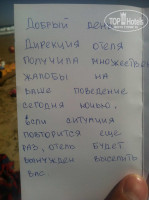 TOPHotels
ДОБРЫЙ ДЕНЬ
ДИРЕКЦИЯ ОТЕЛЯ
ПОЛУЧИЛА МНОЖЕСТВО
ЖАЛОБЫ НА
ВАШЕ ПОВЕДЕНИЕ
СЕГОДНЯ НОЧЬЮ.
ЕСЛИ СИТУАЦИЯ
ПОВТОРИТСЯ ЕЩЕ
РАЗ, ОТЕЛЬ БУДЕТ
ВЫНУЖДЕН ВЫСЕЛИТЬ
ВАС